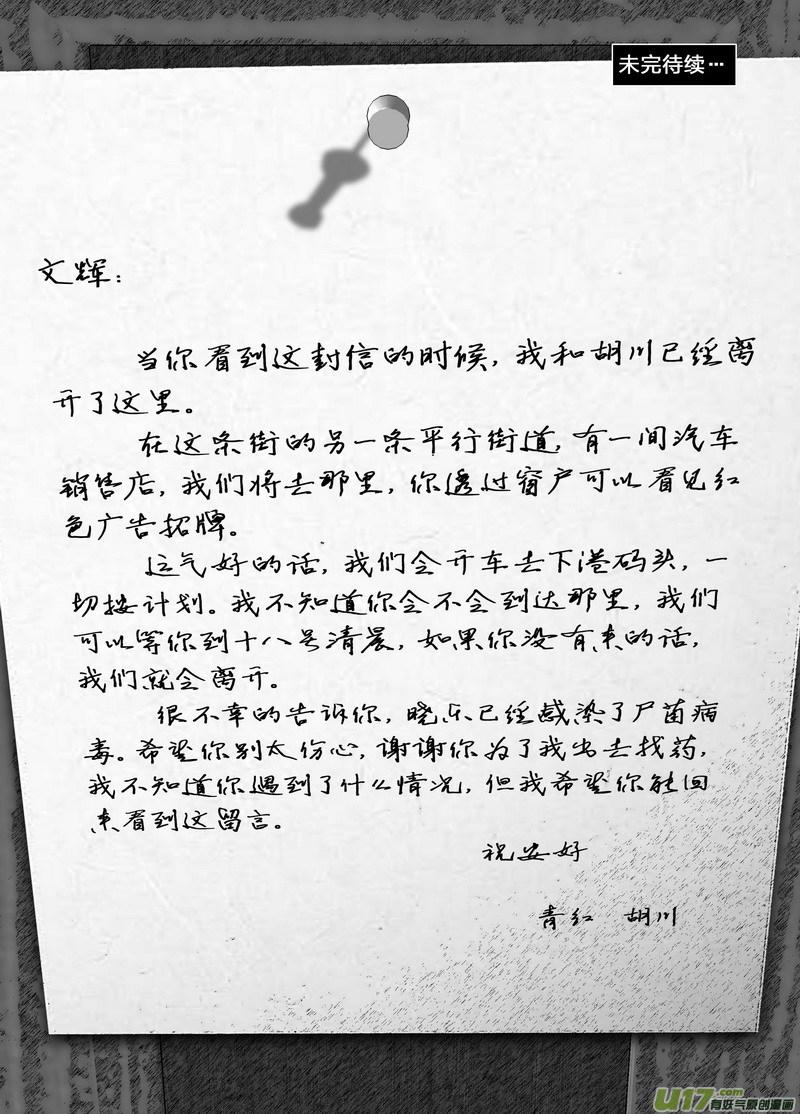 未完待续…
文辉：
当你看到这封信的时候，我和胡川已经离
开了这里。
在这条街的另一条平行街道，有一间汽车
销售店，我们将去那里，你透过窗户可以看见红
色广告招牌。
运气好的话，我们会开车去下港码头，一
切按计划。我不知道你会不会到达那里，我们
可以等你到十八号清晨，如果你没有来的话，
我们就会离开。
很不幸的告诉你，晓乐已经感染了尸菌病
毒。希望你别太伤心，谢谢你为了我出去找药，
我不知道你遇到了什么情况，但我希望你能回
来看到这留言。
祝安好
青红 胡川
U17.com
有好气原创漫画